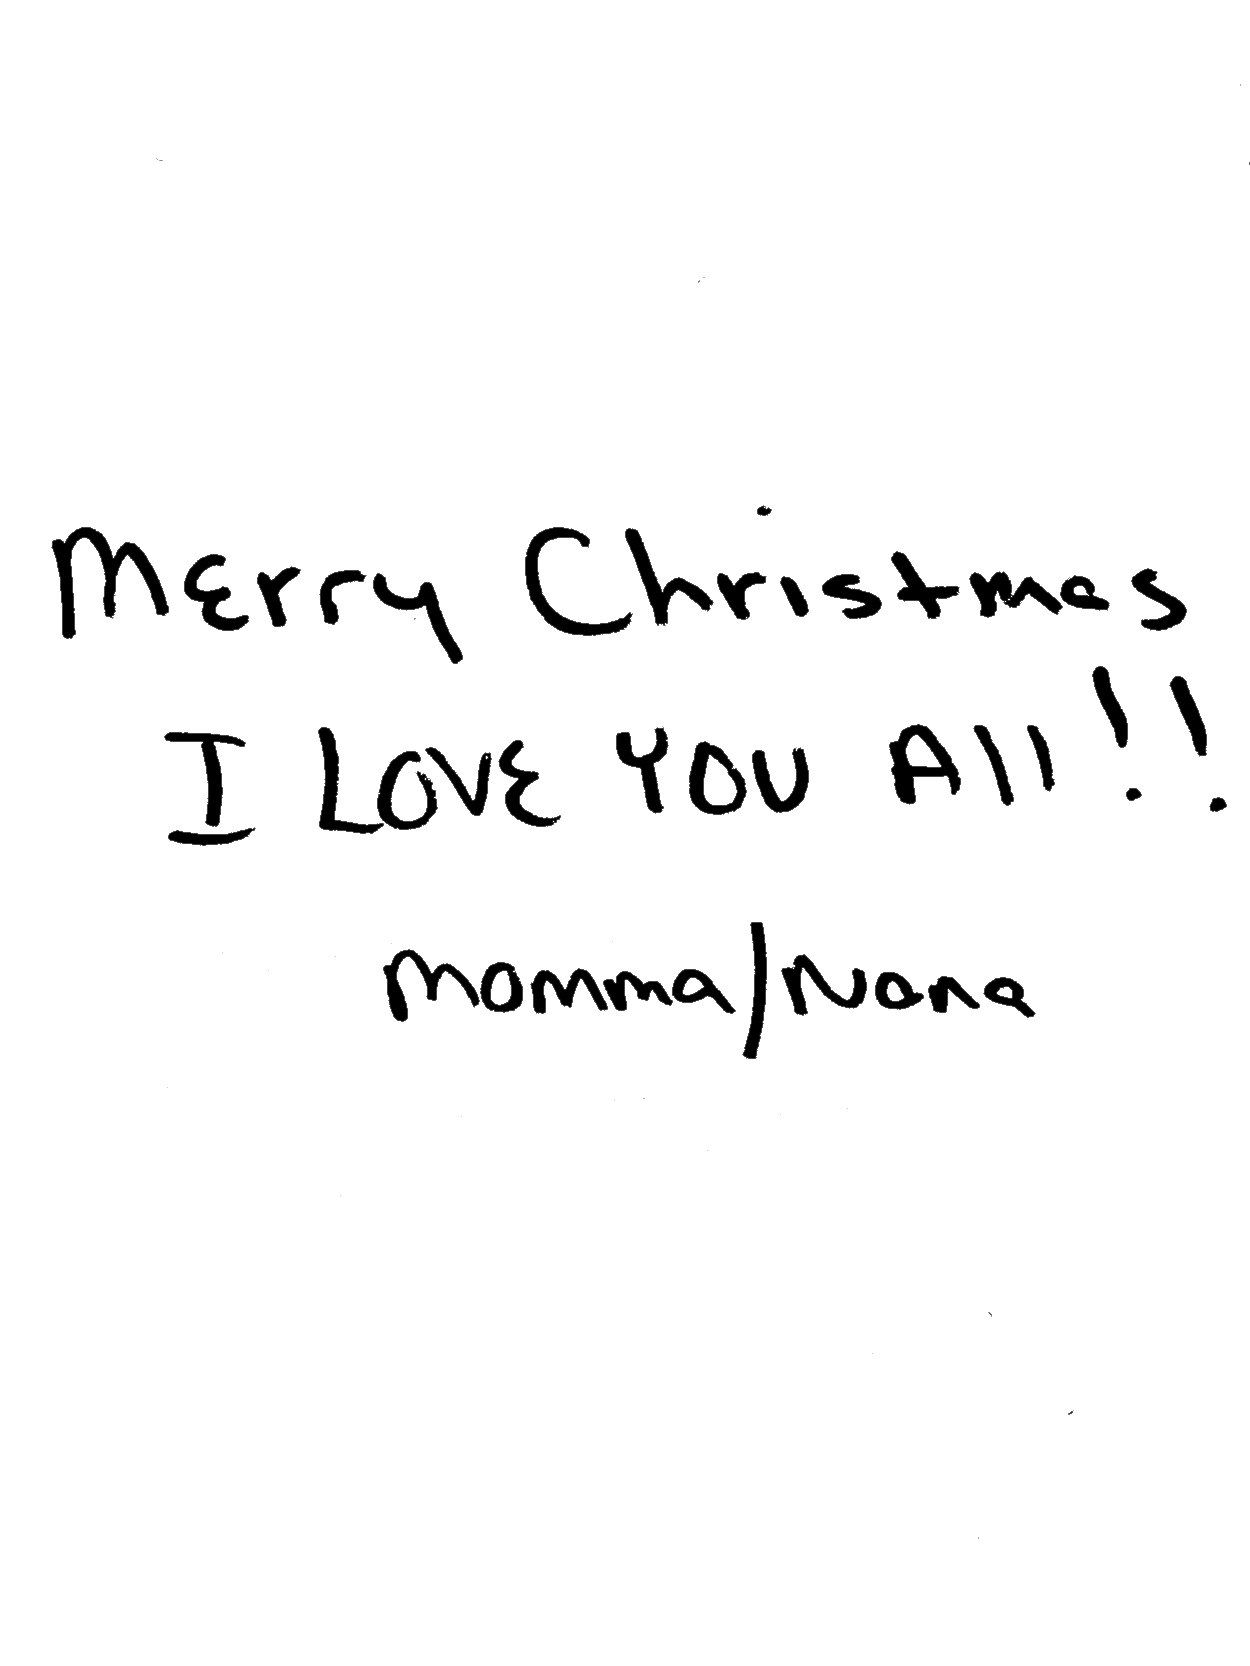 Merry Christmas
I LOVE YOU All!!
Momma/Nana